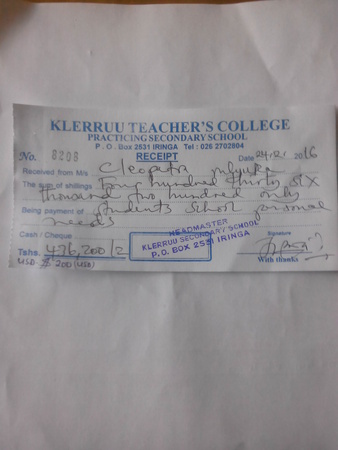 KLERRUU TEACHER'S COLLEGE
PRACTICING SECONDARY SCHOOL
P. O. Box 2531 IRINGA Tel : 026 2702804
No. 8208 RECEIPT Date 2016
Received from M/s Cleopatra
The sum of shillings Four hundred thirty six
thousand two hundred only
Being payment of students school personal
needs
HEADMASTER
KLERRUU SECONDARY SCHOOL
P.O. BOX 2531 IRINGA
Cash / Cheque
Signature
Tshs. 436,200/=
With thanks
USD $ 200 (USD)